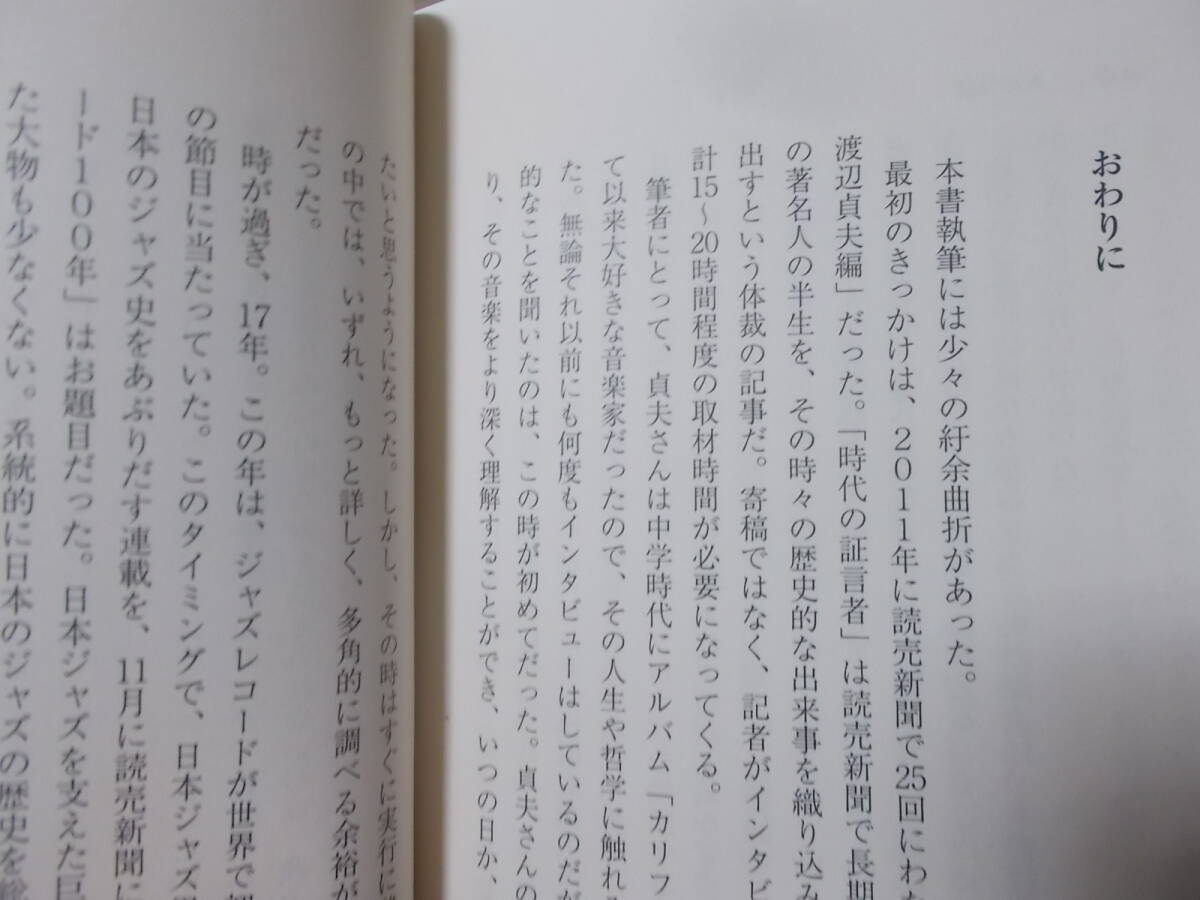 おわりに
本書執筆には少々の紆余曲折があった。
最初のきっかけは、2011年に読売新聞で25回にわた
渡辺貞夫編」だった。「時代の証言者」は読売新聞で長期
の著名人の半生を、その時々の歴史的な出来事を織り込み
出すという体裁の記事だ。寄稿ではなく、記者がインタビ
計15～20時間程度の取材時間が必要になってくる。
筆者にとって、貞夫さんは中学時代にアルバム「カリフ
て以来大好きな音楽家だったので、その人生や哲学に触れ
た。無論それ以前にも何度もインタビューはしているのだが
的なことを聞いたのは、この時が初めてだった。貞夫さんの
り、その音楽をより深く理解することができ、いつの日か、
たいと思うようになった。しかし、その時はすぐに実行に
の中では、いずれ、もっと詳しく、多角的に調べる余裕が
だった。
時が過ぎ、17年。この年は、ジャズレコードが世界で初
の節目に当たっていた。このタイミングで、日本ジャズ
日本のジャズ史をあぶりだす連載を、11月に読売新聞に
ード100年」はお題目だった。日本ジャズを支えた巨
た大物も少なくない。系統的に日本のジャズの歴史を総